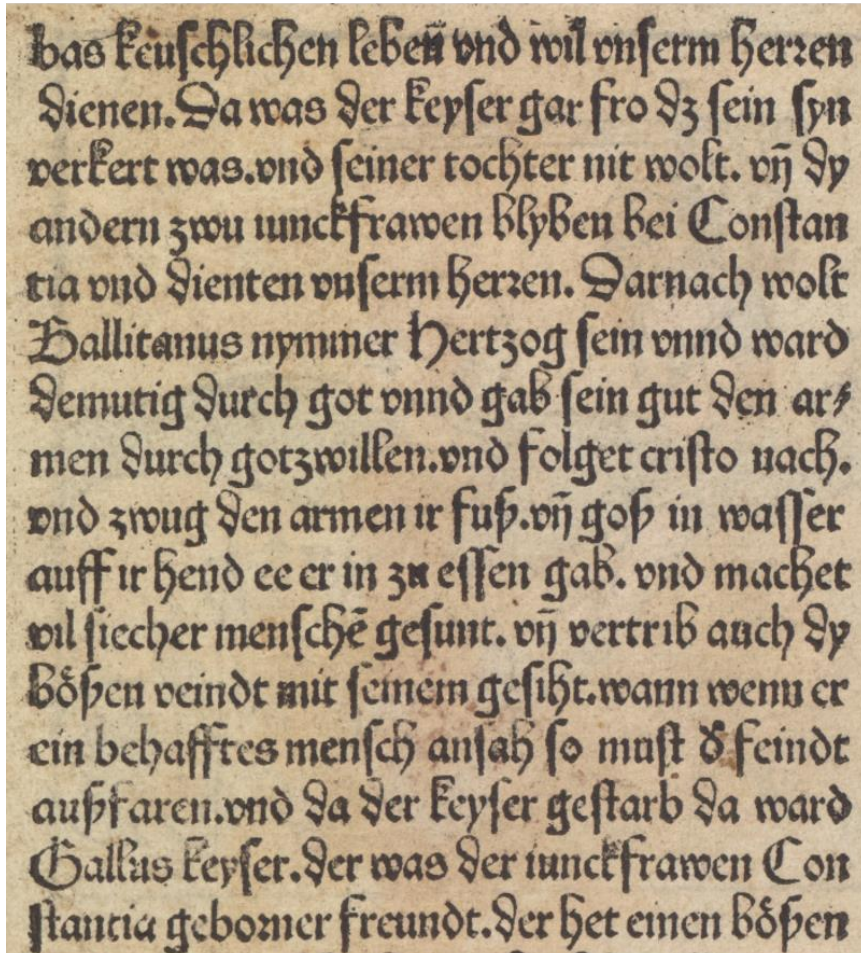 bas keuſchlichen lebeñ vnd wil vnſerm herꝛen
dienen. Da was der keyſer gar fro dz ſein ſyn
verkert was. vnd ſeiner tochter nit wolt. vñ dy
andern zwu iunckfrawen blyben bei Conſtan
tia vnd dienten vnſerm herꝛen. Darnach wolt
Gallitanus nymmer Hertzog ſein vnnd ward
demutig durch got vnnd gab ſein gut den ar⸗
men durch gotzwillen. vnd folget criſto nach.
vnd zwug den armen ir fuß. vñ goß in waſſer
auff ir hend ee er in zu eſſen gab. vnd machet
vil ſiecher menſchē geſunt. vñ vertrib auch dy
bößen veindt mit ſeinem geſiht. wann wenn er
ein behafftes menſch anſah ſo muſt d̕ feindt
außfaren. vnd da der keyſer geſtarb da ward
Gallus keyſer. der was der iunckfrawen Con
ſtantia geboꝛner freundt. der het einen bößen